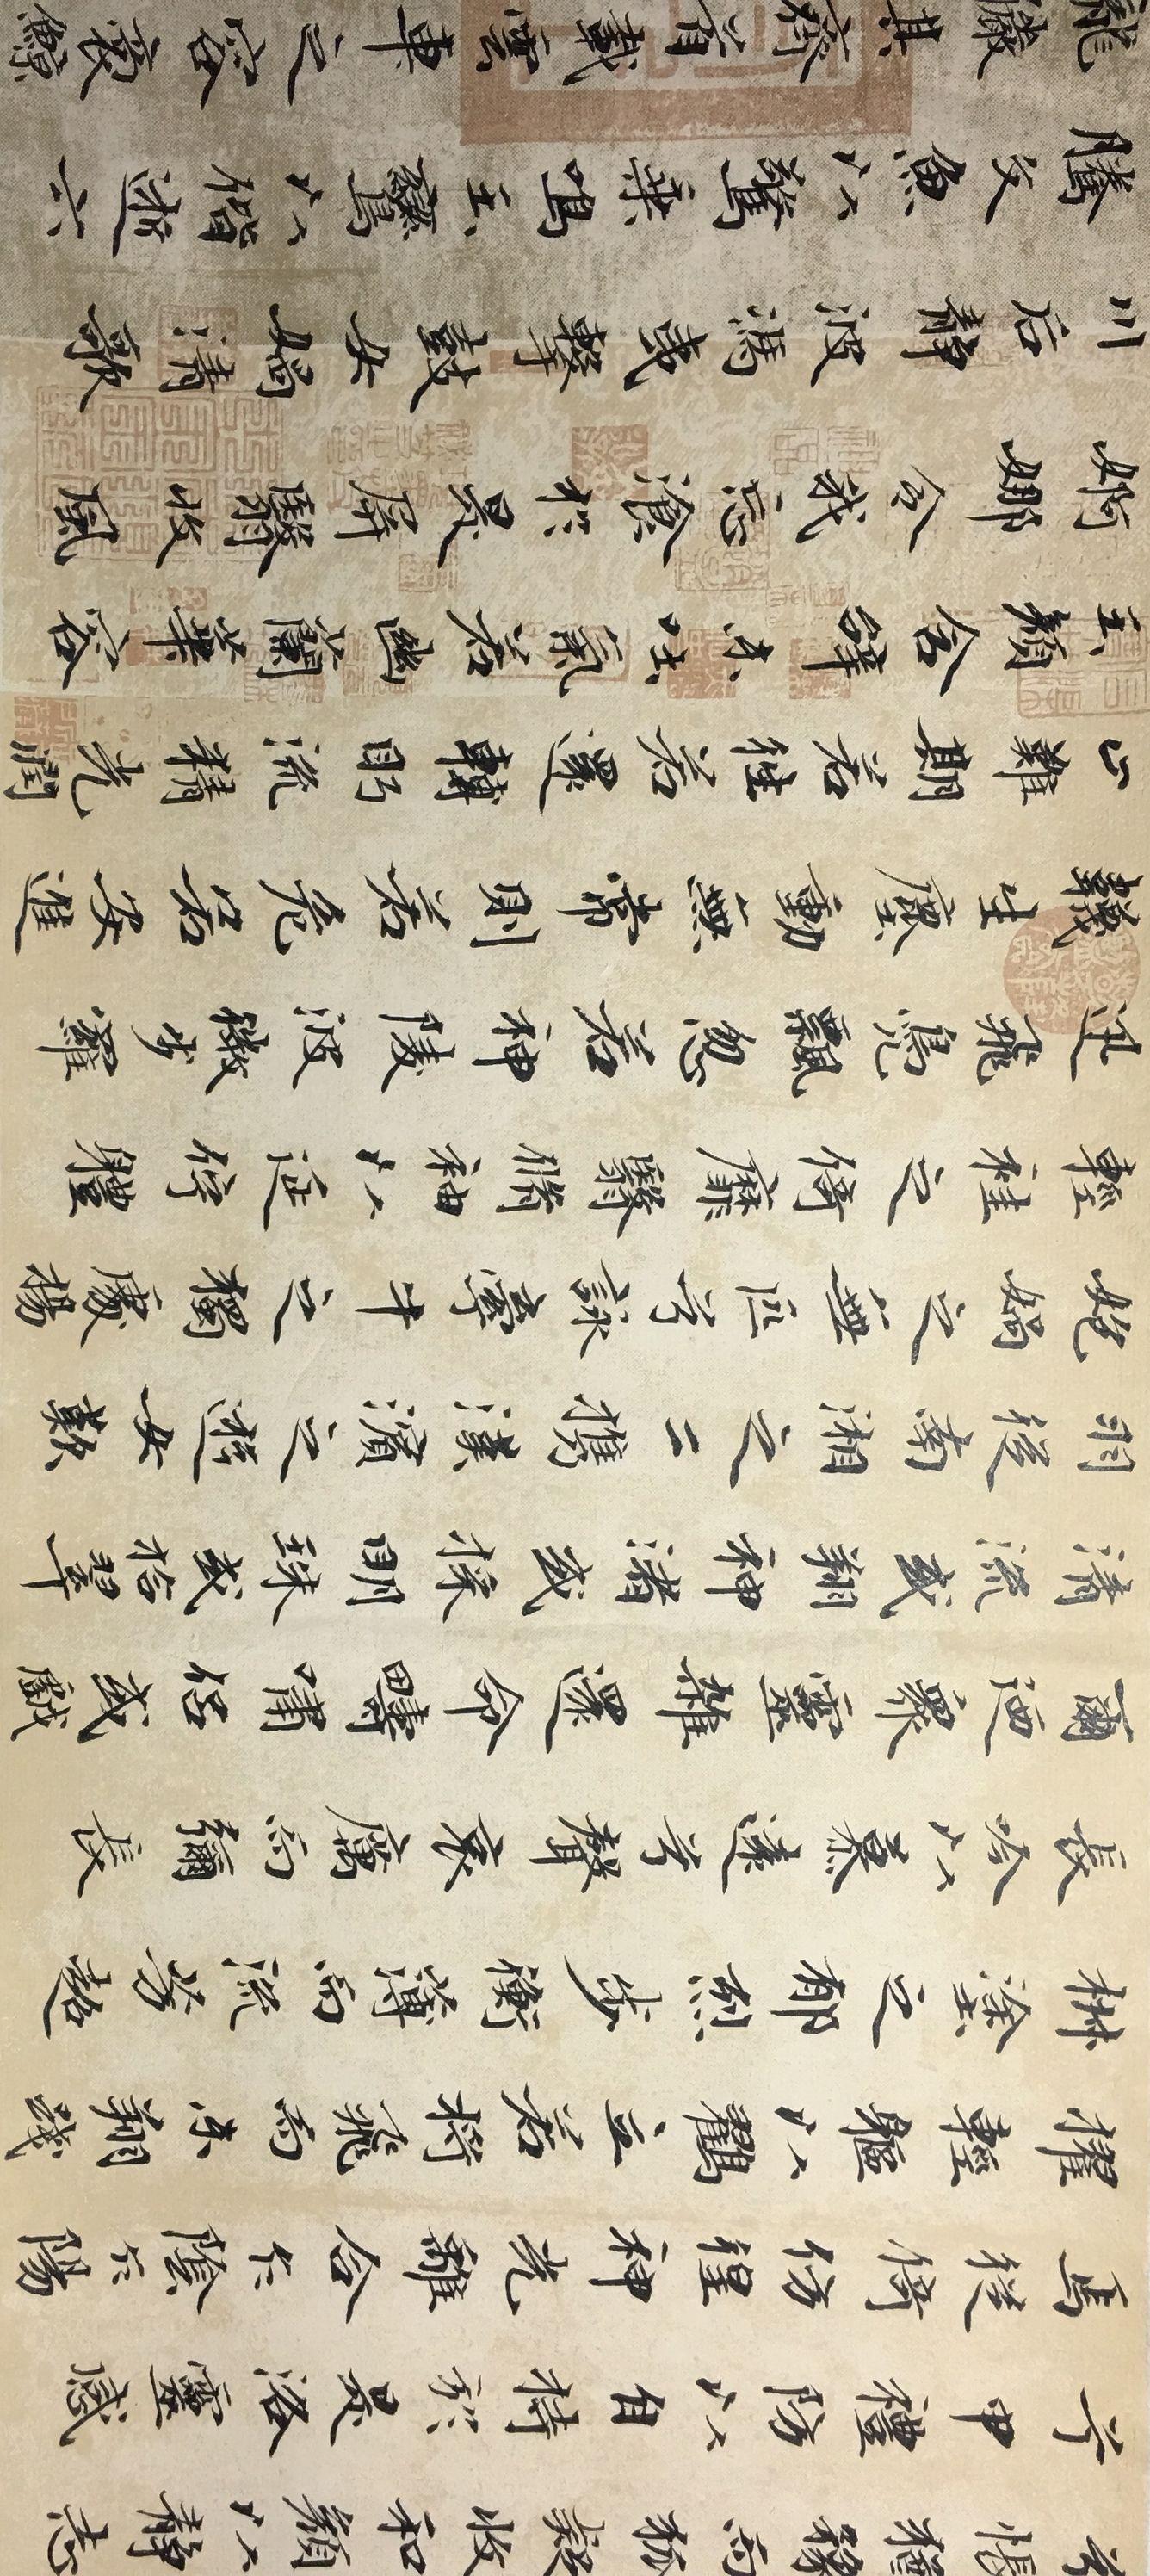 兮悵猶豫而狐疑收和顏以靜志
兮申禮防以自持於是洛靈感
焉徙倚仿徨神光離合乍陰乍陽
擢輕軀以鶴立若將飛而未翔踐
椒塗之郁烈步蘅薄而流芳超
長吟以慕遠兮聲哀厲而彌長
爾迺衆靈雜遝命疇嘯侶或戲
清流或翔神渚或採明珠或拾翠
羽從南湘之二攜漢濱之遊女歎
媧之無匹兮詠牽牛之獨處揚
輕袿之倚靡翳脩袖以延佇體
迅飛鳧飄忽若神陵波微步羅
韈生塵動無常則若危若安進
止難期若往若還轉眄流精光潤
玉顏含辭未吐氣若幽蘭華容
婀娜令我忘飡於是屏翳收風
川后靜波馮夷擊鼓女媧清歌
騰文魚以警乘鳴玉鸞以偕逝六
龍儼其齊首載雲車之容裔鯨